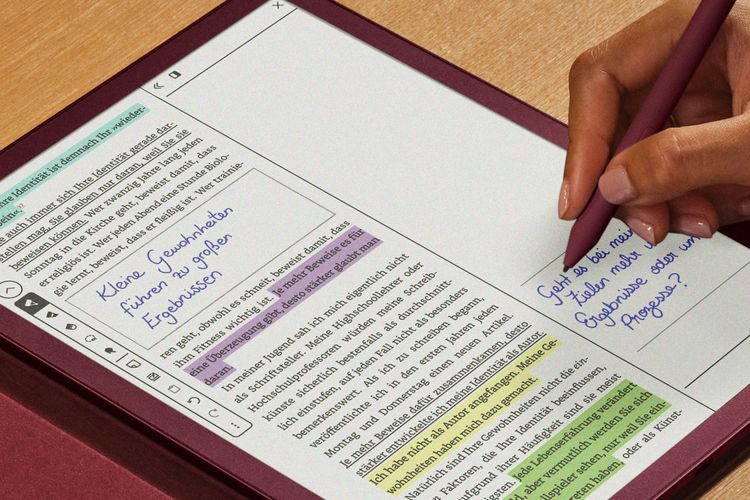 hre Identität ist demnach Ihr »wieder-
ein«.
e auch immer sich Ihre Identität gerade dar-
stellen mag, Sie glauben nur daran, weil Sie sie
beweisen können. Wer zwanzig Jahre lang jeden
Sonntag in die Kirche geht, beweist damit, dass
er religiös ist. Wer jeden Abend eine Stunde Biolo-
gie lernt, beweist, dass er fleißig ist. Wer trainie-
Kleine Gewohnheiten
führen zu großen
Ergebnissen
ren geht, obwohl es schneit, beweist damit, dass
ihm Fitness wichtig ist. Je mehr Beweise es für
eine Überzeugung gibt, desto stärker glaubt man
daran.
In meiner Jugend sah ich mich eigentlich nicht
als Schriftsteller. Meine Highschoollehrer oder
Hochschulprofessoren würden meine Schreib-
künste sicherlich bestenfalls als durchschnitt-
lich einstufen, auf jeden Fall nicht als besonders
bemerkenswert. Als ich zu schreiben begann,
veröffentlichte ich in den ersten Jahren jeden
Montag und Donnerstag einen neuen Artikel.
Je mehr Beweise dafür zusammenkamen, desto
stärker entwickelte ich meine Identität als Autor.
Ich habe nicht als Autor angefangen. Meine Ge-
wohnheiten haben mich dazu gemacht.
Natürlich sind Ihre Gewohnheiten nicht die ein-
en Faktoren, die Ihre Identität beeinflussen,
aufgrund ihrer Häufigkeit sind sie meist
Jede Lebenserfahrung verändert
aber vermutlich werden Sie sich
spieler sehen, nur weil Sie ein-
haben, oder als Künst-
Geht es bei
Zielen mehr
Ergebnisse oder um
Prozesse?